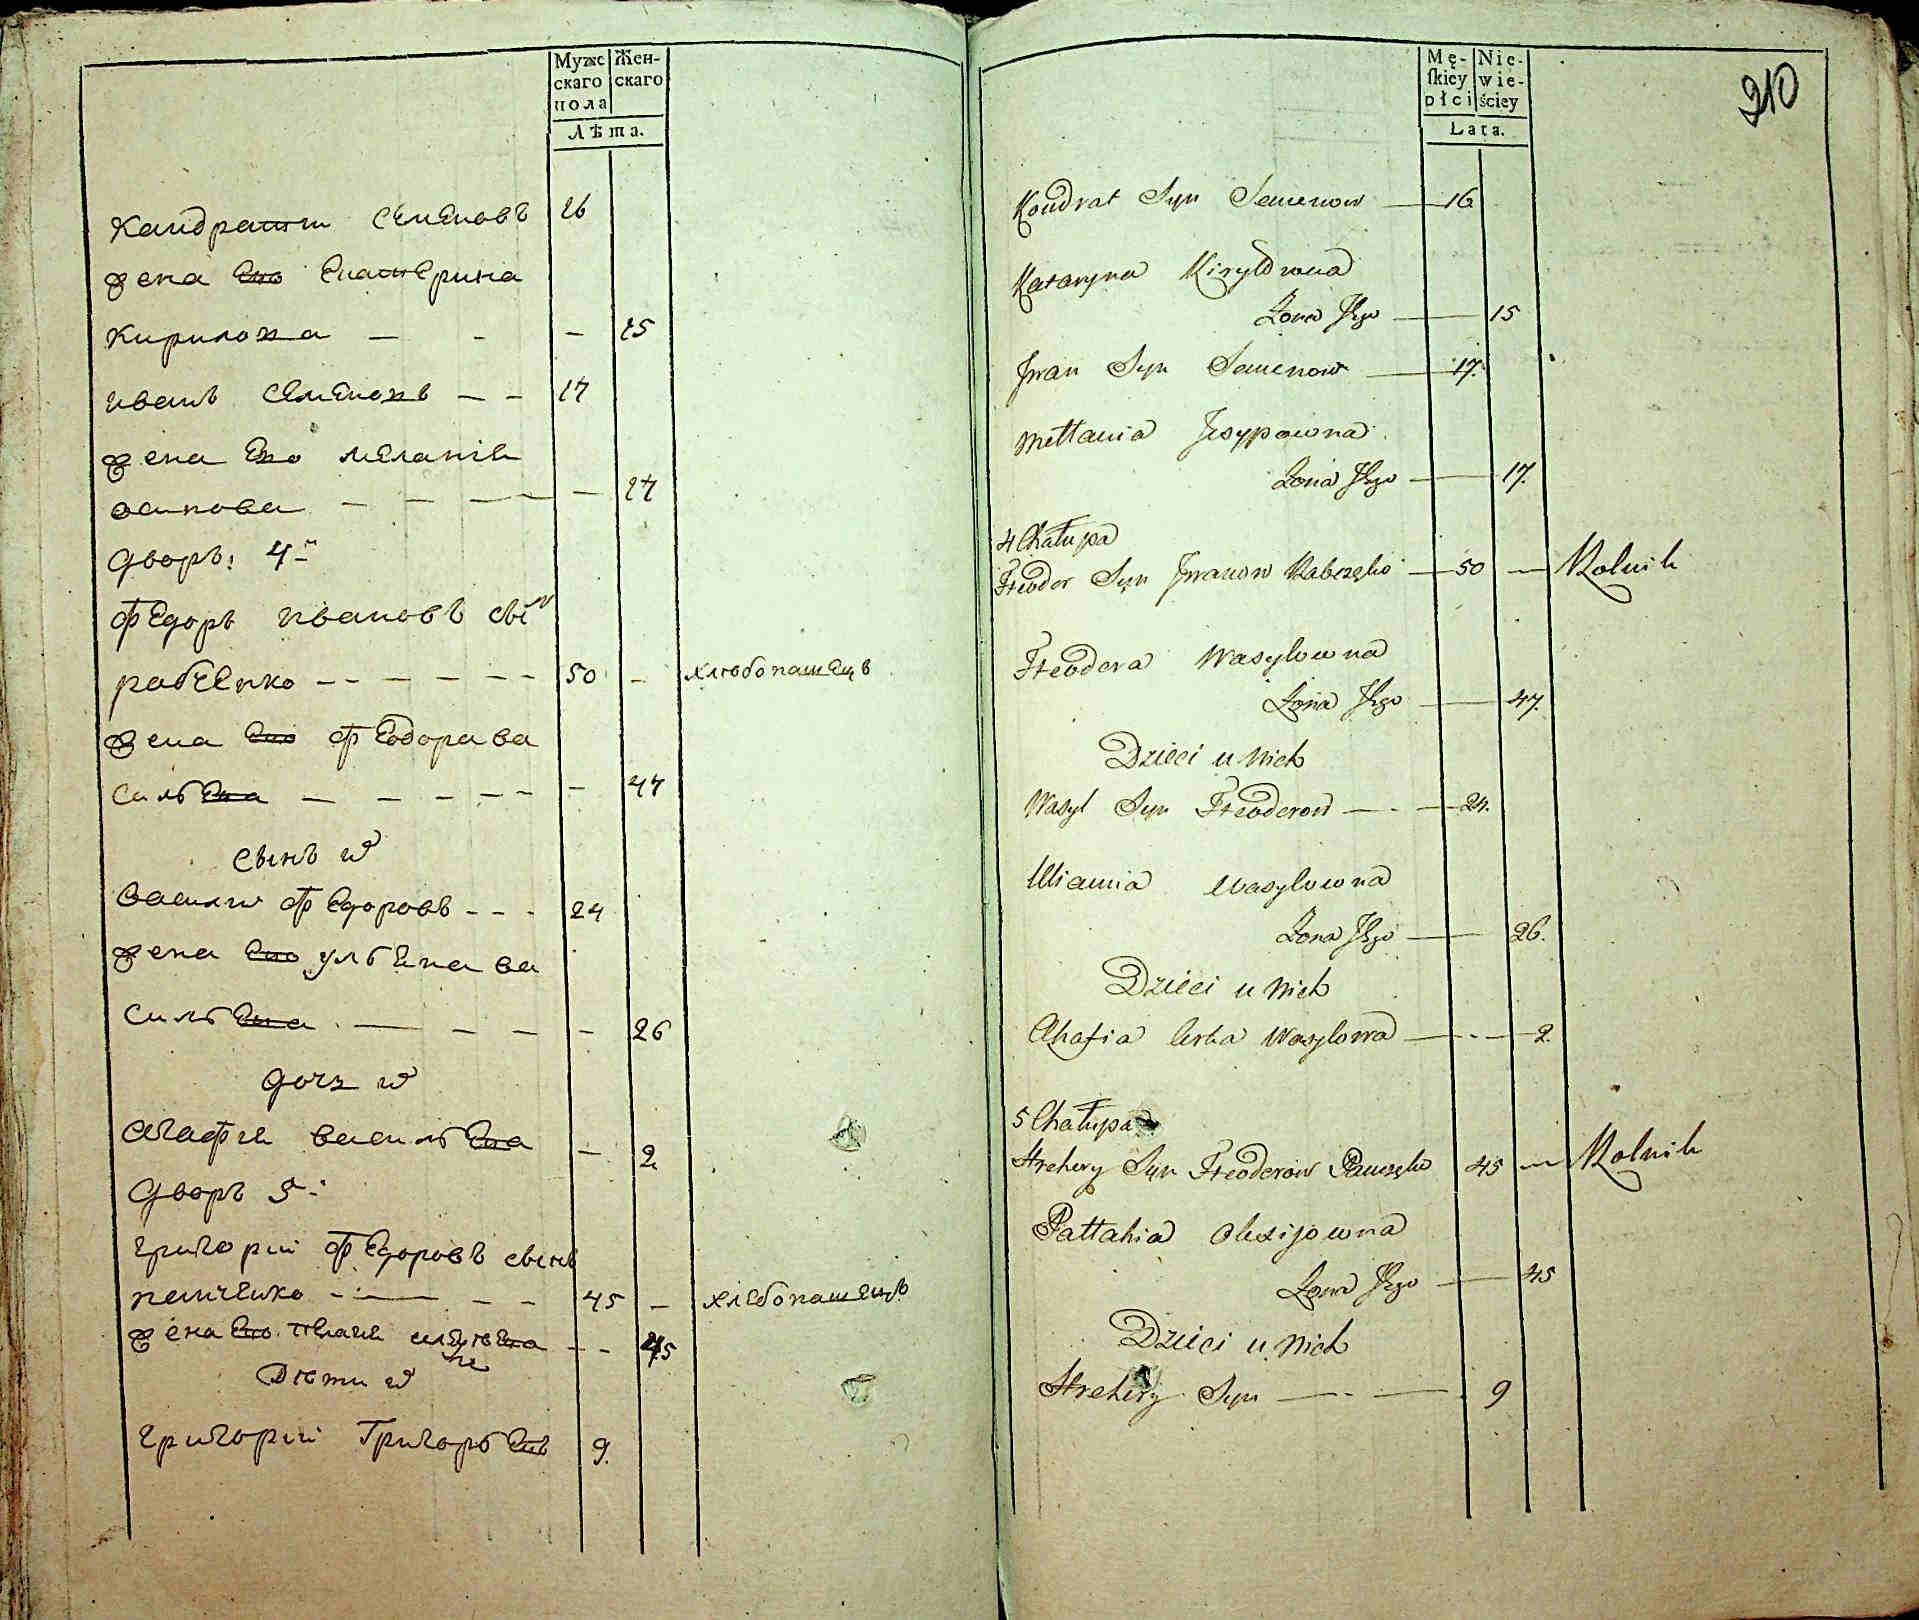 Мужескаго пола
Женскаго
Лѣта.
Кандратіи Семеновъ 26
Жена Ево Екатерина
Кирилова — - — 25
Иванъ Семеновъ — — 17
Жена Ево Меланія
Осипова — — — — 27
Дворъ: 4й
Федоръ Ивановъ сынъ
рабченко - - - - - - 50 — хлѣбопашецъ
Жена Ево Феодора ва
сильевна — — — - - — 47
сынъ ѡ
Василий Федоровъ - - - 24
Жена Ево Ульяна ва
сильевна — — — — 26
дочь ѡ
Агафия васильевна — 2
Дворъ 5й
Григорий Федоровъ сынъ
панченко - — — — 45 — хлебопашецъ
Жена Ево Пелагея — — 45
Дѣти ѡ
Григорий Григорьевъ 9.
Męſkiey płci
Niewieściey
Lata.
210
Kondrat Syn Semenow — 16
Kataryna Kiryłowna
Żona Jego — 15
Jwan Syn Semenow — 17.
Mettania Jesypowna
Żona Jego — 17.
4 Chałupa
Fteodor Syn Jwanow Rabczęko — 50 — Rolnik
Fteodora Wasylowna
Żona Jego — 47.
Dzieci u Nich
Wasyl Syn Fteoderow — · — 24.
Ulianna Wasylowna
Żona Jego — 26.
Dzieci u Nich
Ahafia Corka Wasylowa — · — 2.
5 Chałupa
Hrehory Syn Fteoderow Pauczęko 45 — Rolnik
Pattahia Olexijowna
Żona Jego — 45
Dzieci u Nich
Hrehory Syn — · — 9